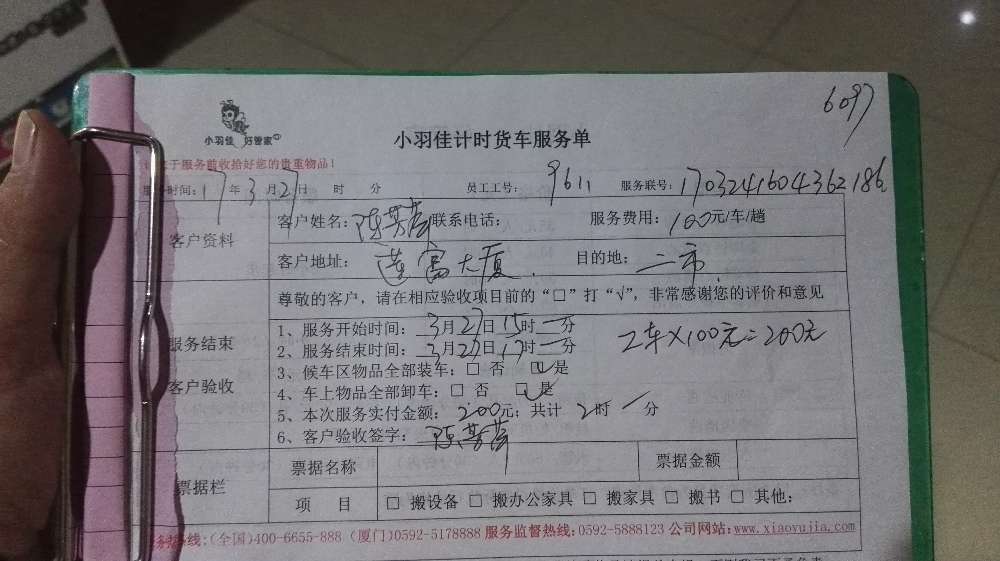 6097
小羽佳 好管家
小羽佳计时货车服务单
于服务前收拾好您的贵重物品！
时间：17年3月27日 时 分 员工工号：9611 服务联号：1703241604362186
客户资料
客户姓名：陈 联系电话： 服务费用：100元/车/趟
客户地址：莲富大厦 目的地：二市
尊敬的客户，请在相应验收项目前的“□”打“√”，非常感谢您的评价和意见
服务结束
客户验收
1、服务开始时间：3月27日15时一分
2、服务结束时间：3月27日17时一分
2车×100元=200元
3、候车区物品全部装车：□ 否 ☑ 是
4、车上物品全部卸车：□ 否 ☑ 是
5、本次服务实付金额：200元；共计 2时 一 分
6、客户验收签字：陈
票据栏
票据名称 票据金额
项 目 □ 搬设备 □ 搬办公家具 □ 搬家具 □ 搬书 □ 其他：
务热线：(全国)400-6655-888 (厦门)0592-5178888 服务监督热线：0592-5888123 公司网站：www.xiaoyujia.com